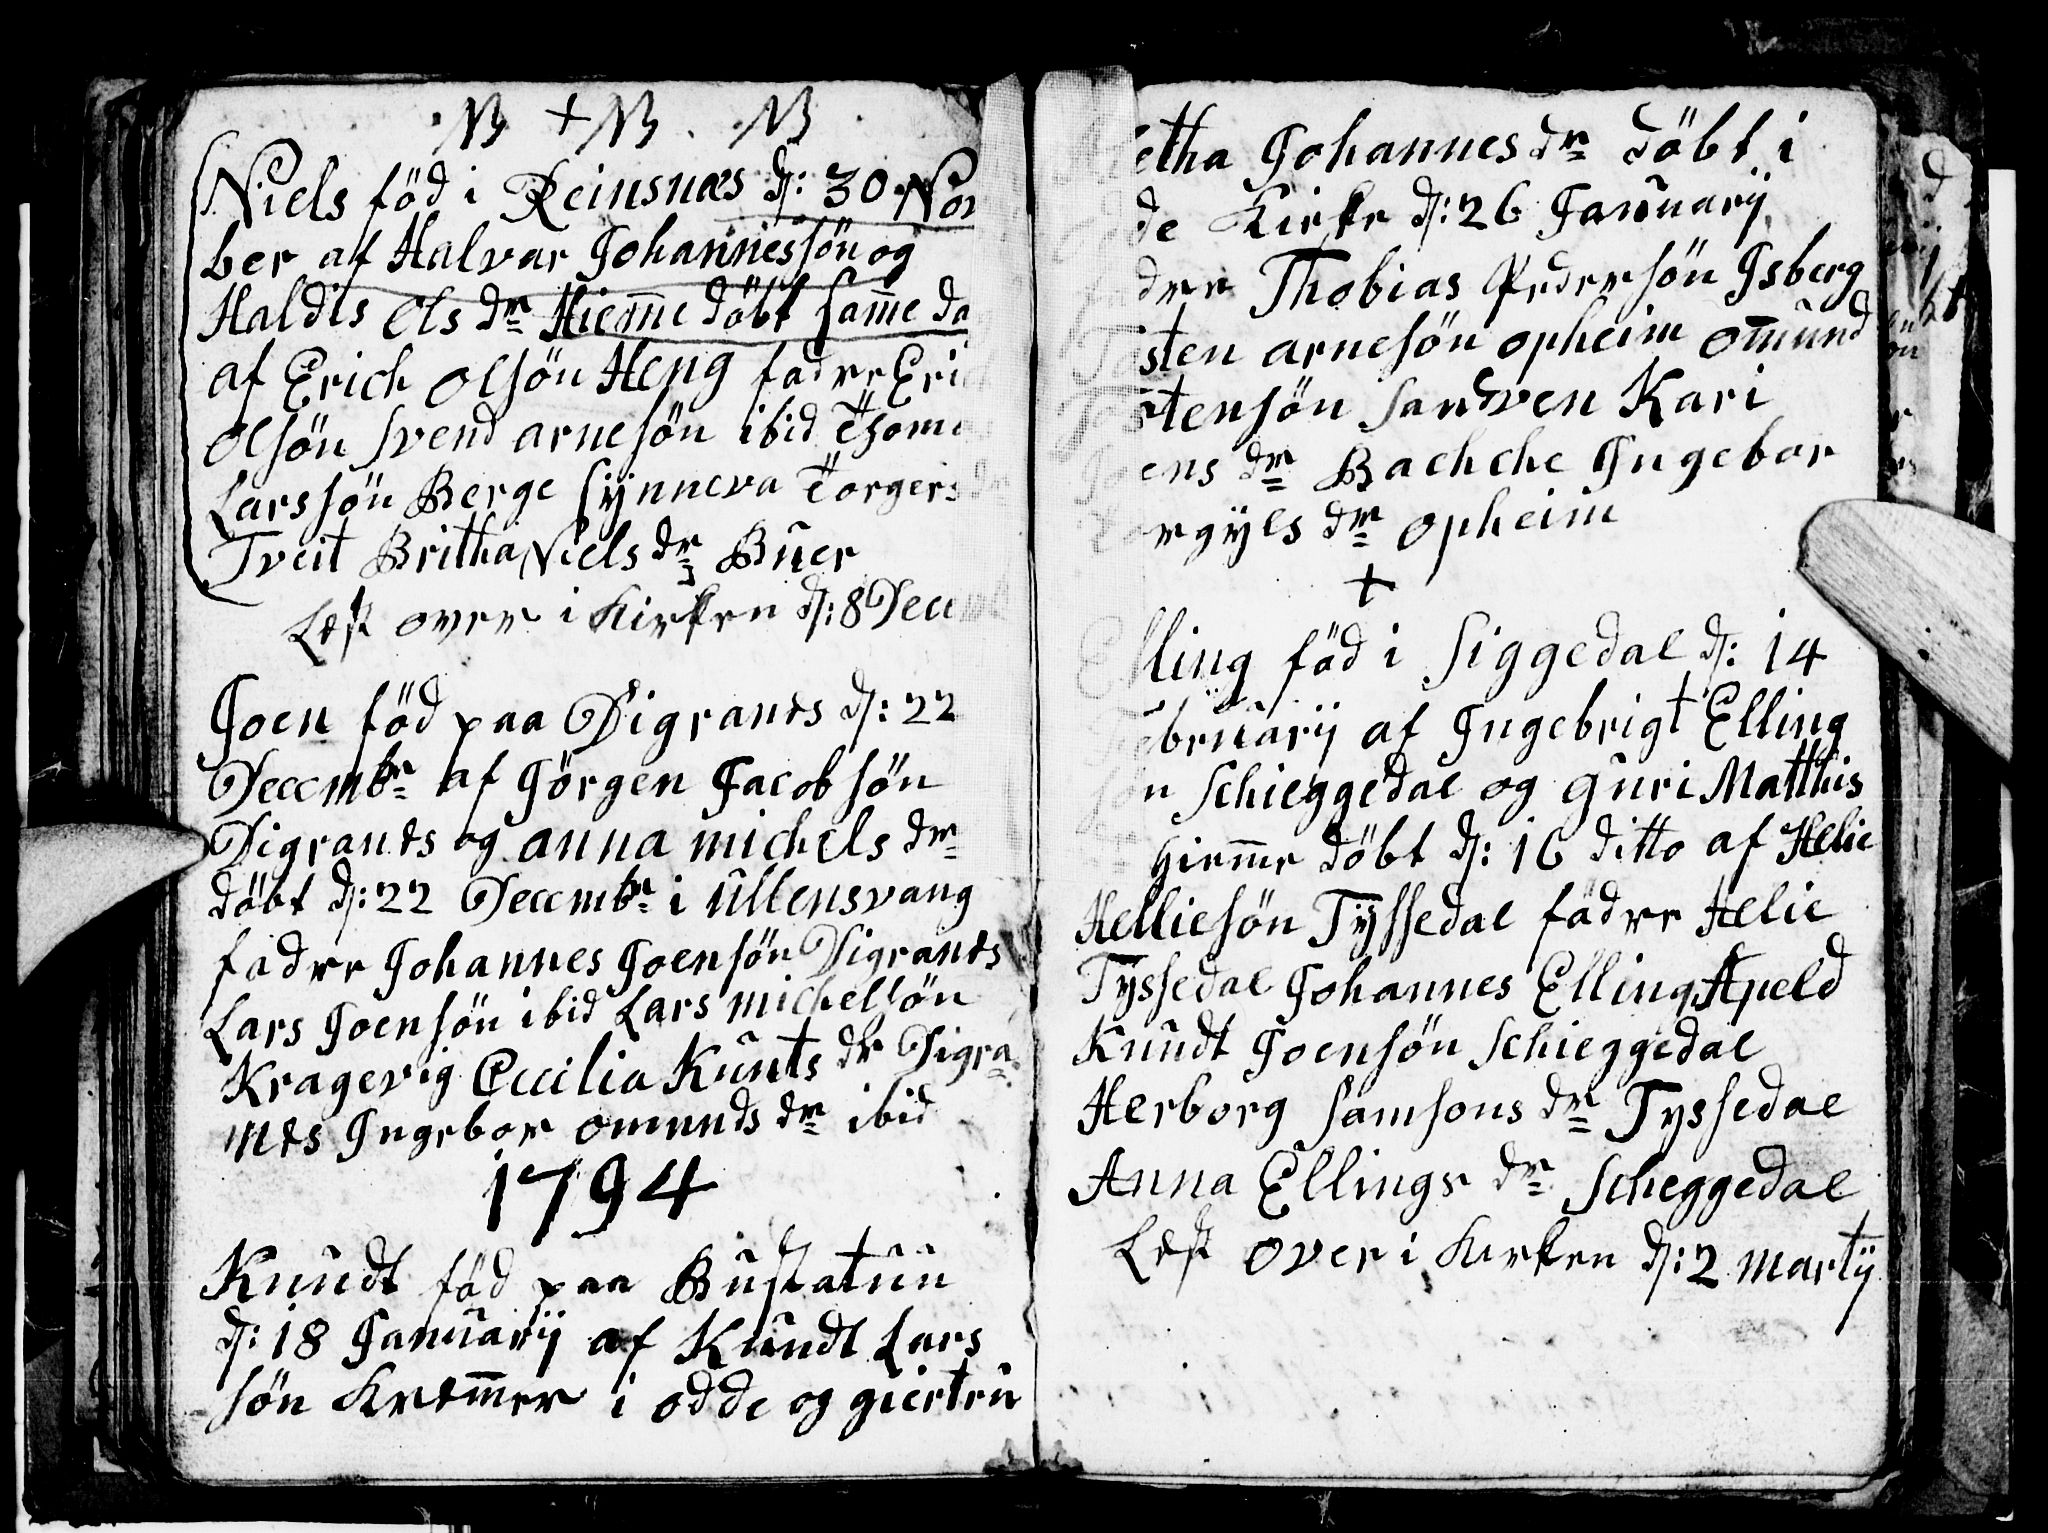 NB + NB . NB .
Niels föd i Reinsnæs d: 30 Nov
ber af Halvar Johannessön og
Haldis Ols dr Hiem̄e döbt sam̄e da
af Erich Olsön Heng fadre Erich
Olsön Svend arnesön ibid Thoma
Larssön Berge Synneva Torgers dr
Tveit Britha Niels dr Buer
Lest over i Kirken d: 8 Decemb
Joen föd paa Digranes d: 22
Decembr af Jörgen Jacobsön
Digranes og anna michels dr
döbt d: 22 Decembr i Ullensvang
fadre Johannes Joensön Digranes
Lars Joensön ibid Lars michelsön
Kragevig Cecilia Kunts dr Digra
nes Ingebor omunds dr ibid
1794
Knudt föd paa Bustatun
d: 18 Januarij af Knudt Lars
sön Krem̄er i odde og giertru
etha Johannes dr döbt i
de Kirke d: 26 Januarij
dre Thobias Pedersön Isberg
Tosten arnesön opheim om̄und
stensön Sandven Kari
ens dr Bachche Ingebor
rgyls dr opheim
+
Elling föd i Siggedal d: 14
Februarij af Ingebrigt Elling
sön Schieggedal og guri Matthis
Hiem̄e döbt d: 16 ditto af Helie
Helliesön Tyssedal fadre Helie
Tyssedal Johannes Elling Apeld
Knudt Joensön Schieggedal
Herborg Samsons dr Tyssedal
Anna Ellings dr Scheggedal
Lest over i Kirken d: 2 martij